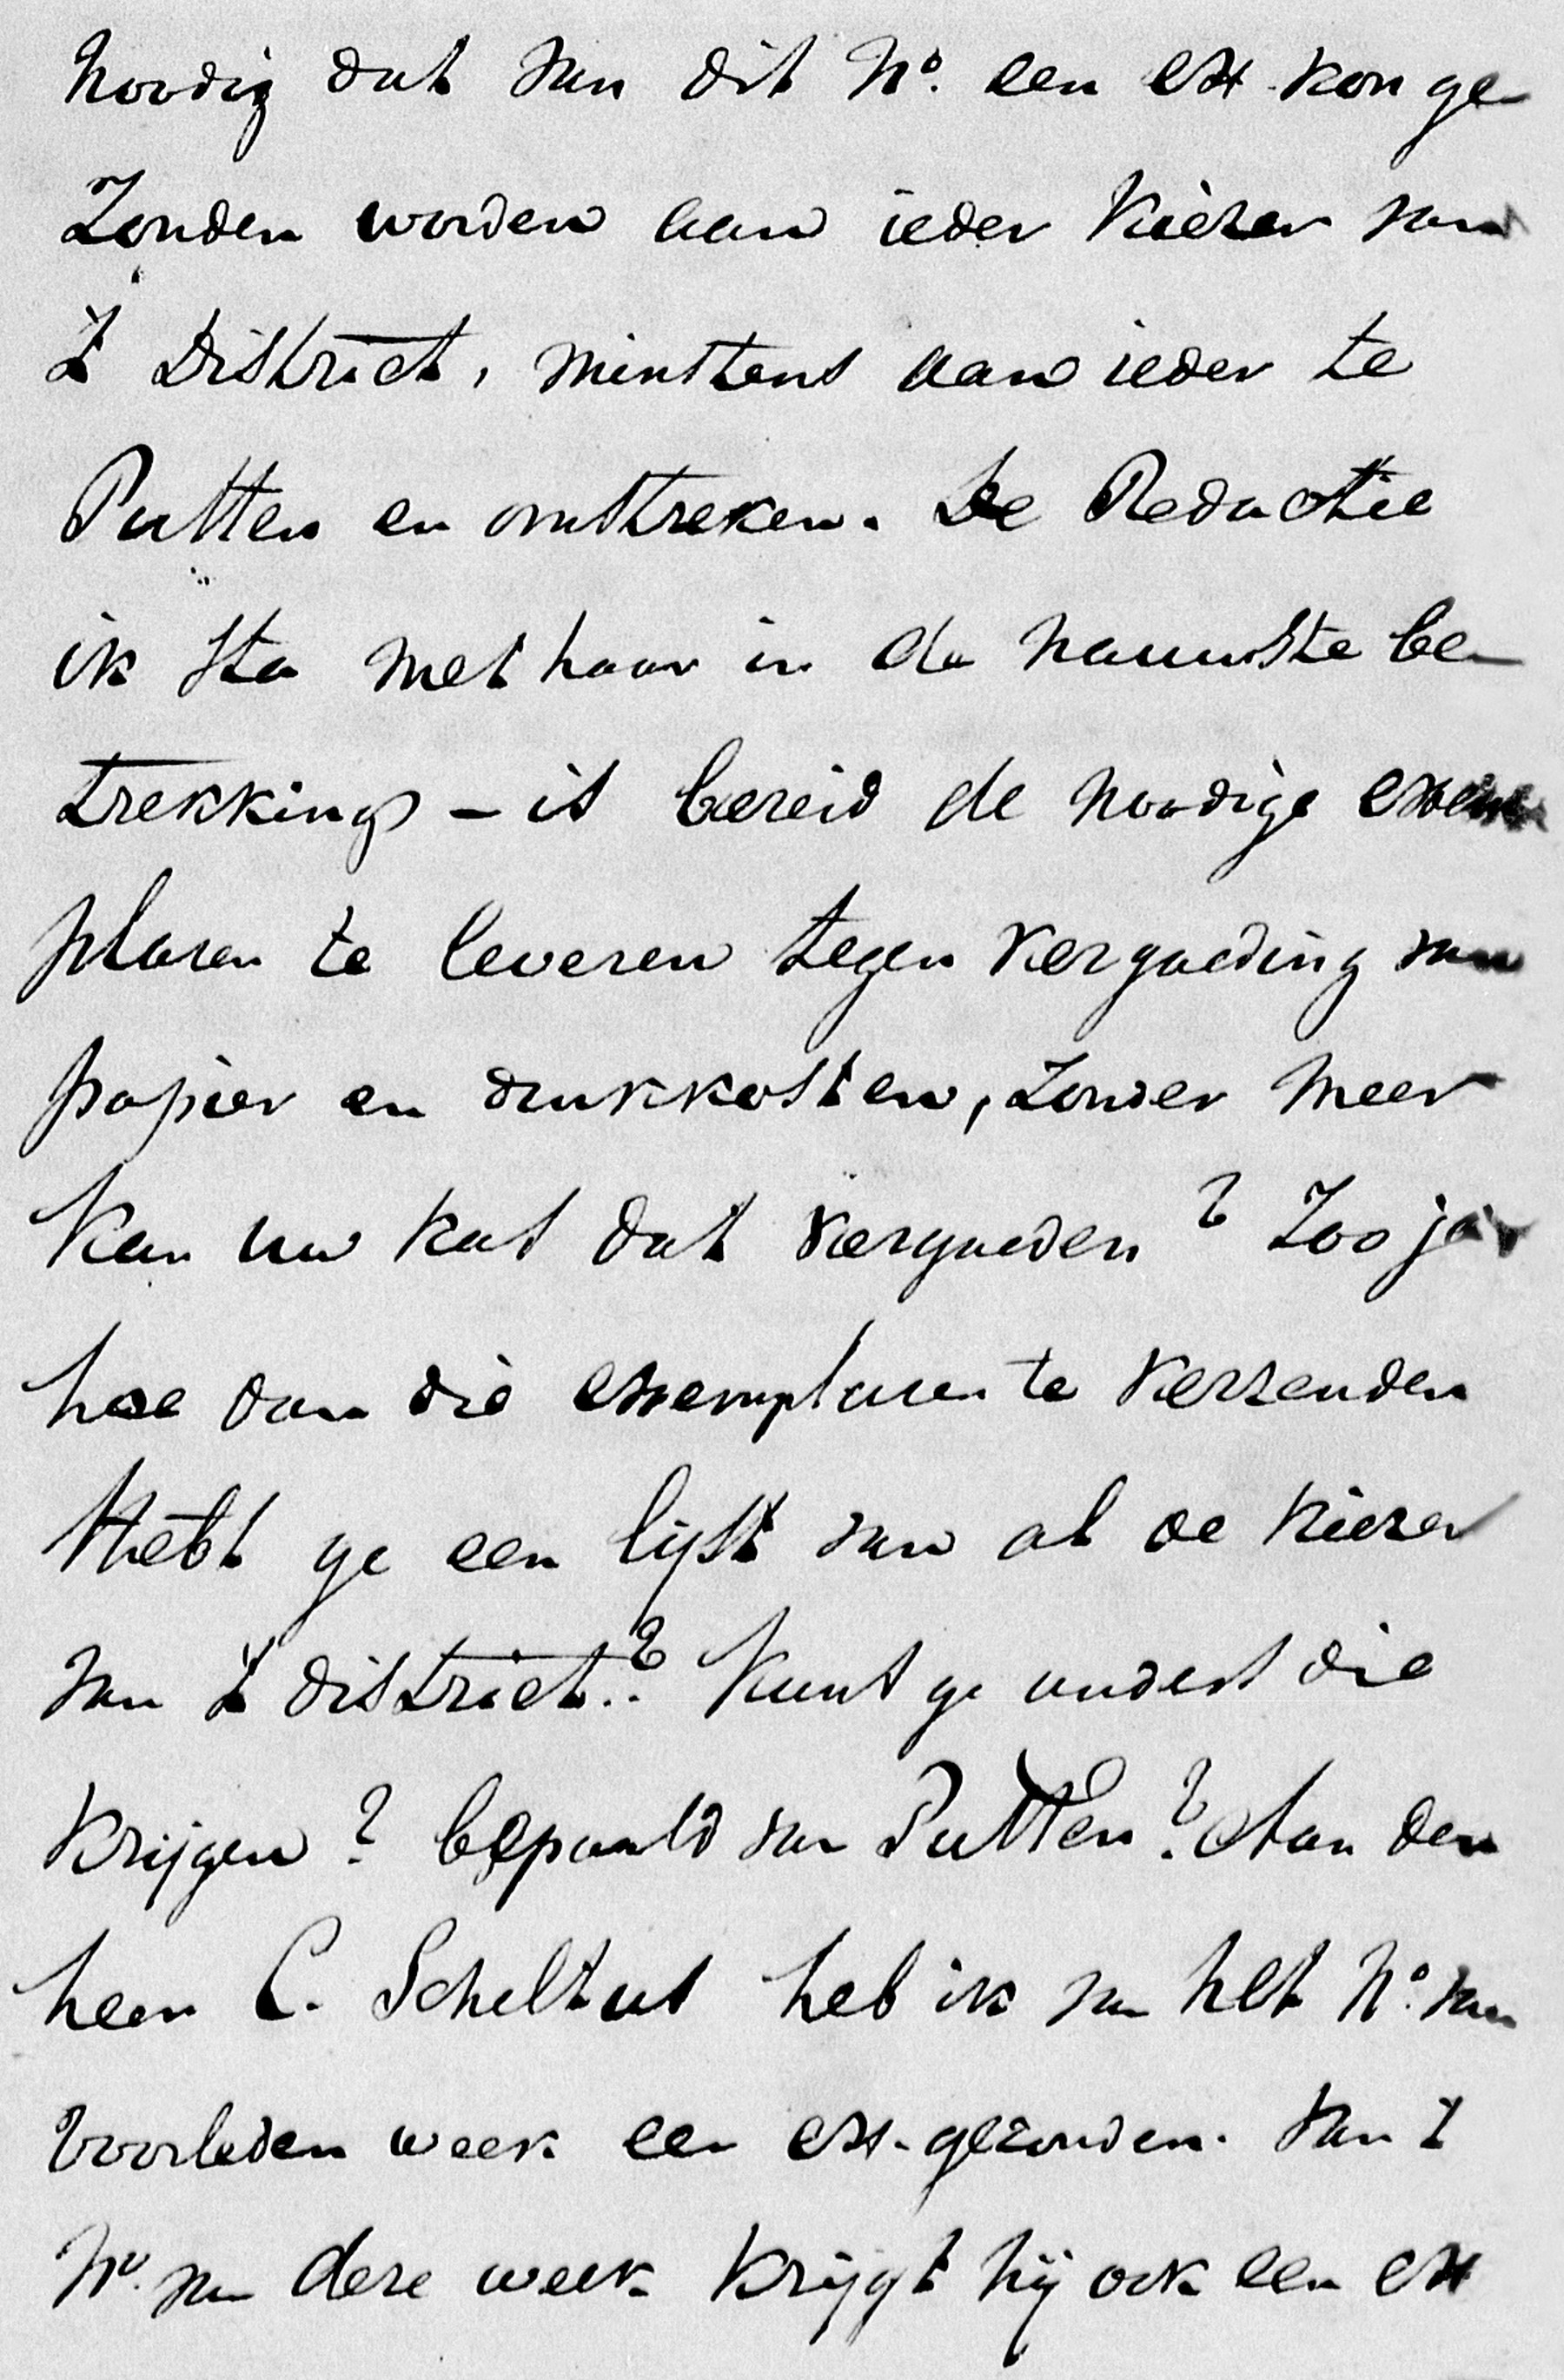 noodig dat van dit No. een ex kon ge
zonden worden aan ieder kiezer van
't District, minstens aan ieder te
Putten en omstreken. De Redactie
ik sta met haar in de nauwste be
trekking – is bereid de noodige exem
plaren te leveren tegen vergoeding van
papier en drukkosten, zonder meer
Kan uw kas dat vergoeden? Zoo ja,
hoe dan die exemplaren te verzenden
Hebt ge een lijst van al de kiezer
van 't district? Kunt ge anders die
krijgen? bepaald van Putten? Aan den
heer C. Scheltus heb ik van het No. van
voorleden week een ex. gezonden. Van 't
No. van deze week krijgt hij ook een ex